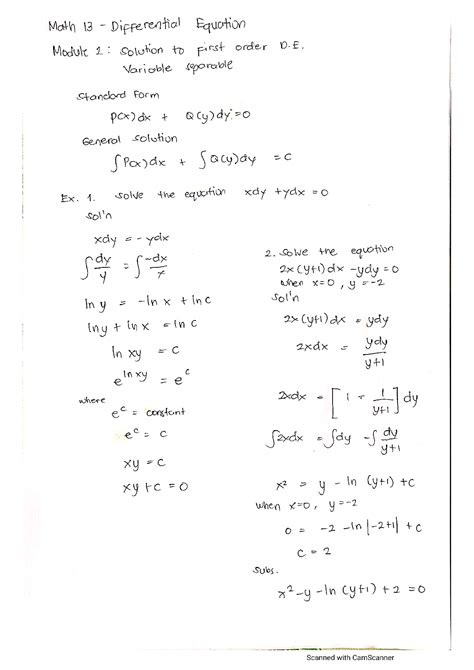 Math 13 - Differential Equation
Module 2: Solution to First order D.E.
Variable separable
Standard Form
P(x)dx + Q(y)dy = 0
General solution
∫P(x)dx + ∫Q(y)dy = C
Ex. 1. solve the equation xdy + ydx = 0
sol'n
xdy = - ydx
∫ dy/y = ∫ -dx/x
ln y = -ln x + ln c
lny + ln x = ln c
ln xy = c
e^ln xy = e^c
where
e^c = constant
e^c = c
xy = c
xy + c = 0
2. Solve the equation
2x(y+1)dx - ydy = 0
when x=0, y=-2
sol'n
2x(y+1)dx = ydy
2xdx = ydy/y+1
2xdx = [1 - 1/y+1] dy
∫2xdx = ∫dy - ∫ dy/y+1
x² = y - ln (y+1) + c
when x=0, y=-2
0 = -2 - ln|-2+1| + c
c = 2
subs.
x² - y - ln(y+1) + 2 = 0
Scanned with CamScanner